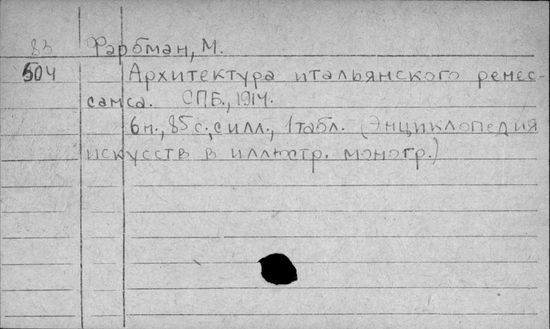 83 Фарбман, М.
504 Архитектура итальянского ренес-
санса. СПБ., 1914.
6н., 85с., с илл., 1табл. (Энциклопедия
искусств в иллюстр. моногр.)